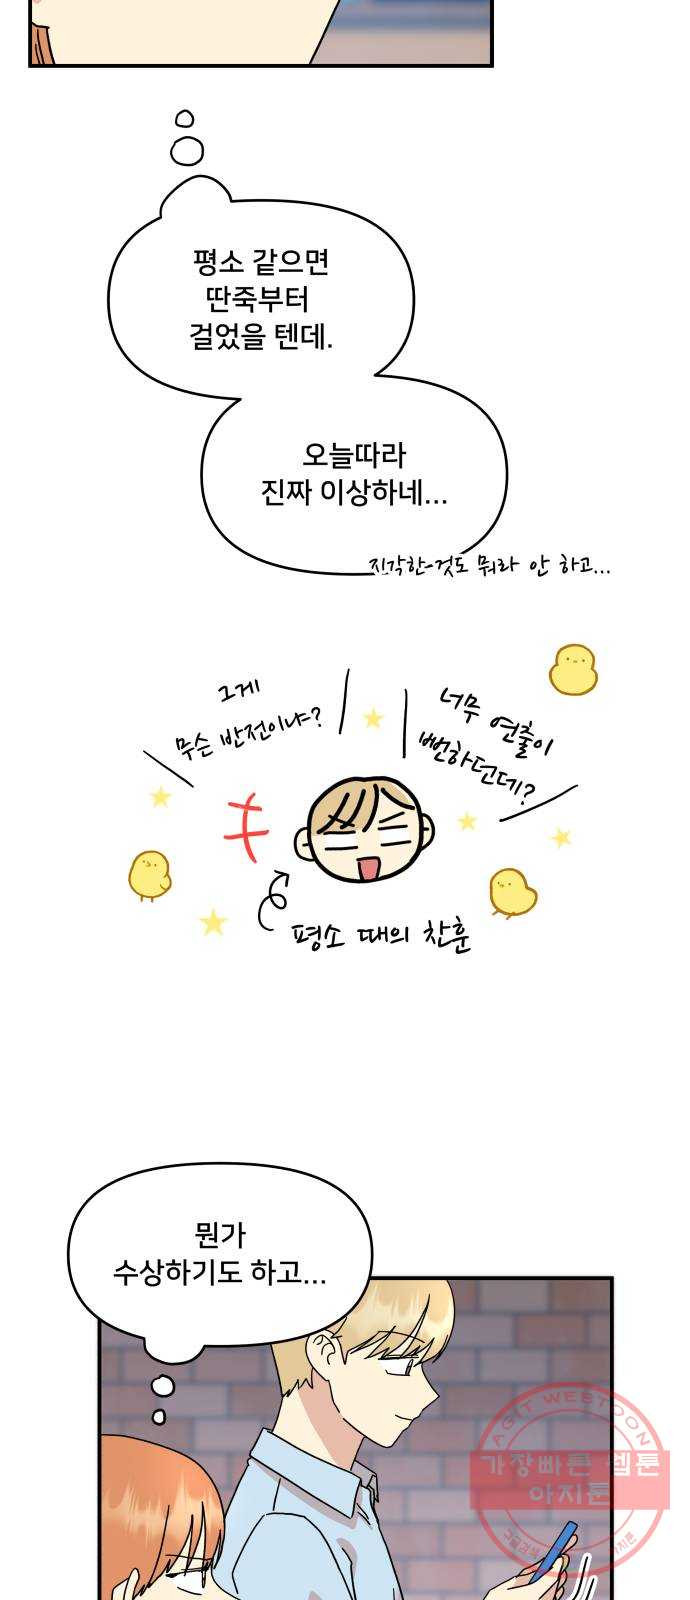 평소 같으면
딴죽부터
걸었을 텐데.
오늘따라
진짜 이상하네...
지각한 것도 뭐라 안 하고...
그게
무슨 반전이냐?
너무 연출이
뻔하던데?
평소 때의 찬훈
뭔가
수상하기도 하고...
AGIT WEBTOON
가장빠른 웹툰
아지툰